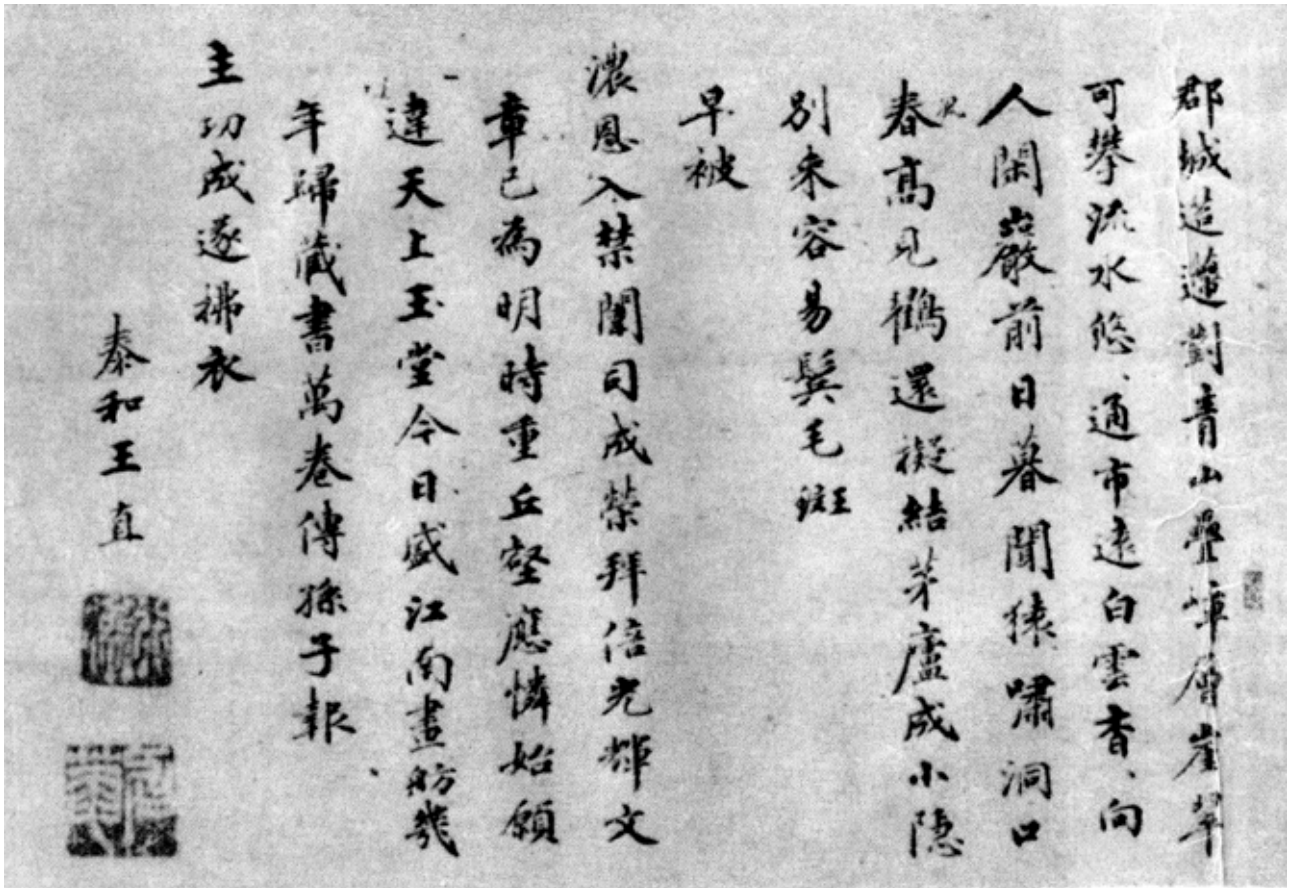 郡城迢遞對青山疊嶂層崖翠
可攀流水悠、通市遠白雲杳、向
人閑巖前日暮聞猿嘯洞口
春深高見鶴還擬結茅廬成小隱
別來容易鬂毛斑
早被
濃恩入禁闈司成榮拜倍光輝文
章已為明時重丘壑應憐始願
違天上玉堂今日盛江南畫舫幾
年歸藏書萬卷傳孫子報
主功成遂拂衣
泰和王直